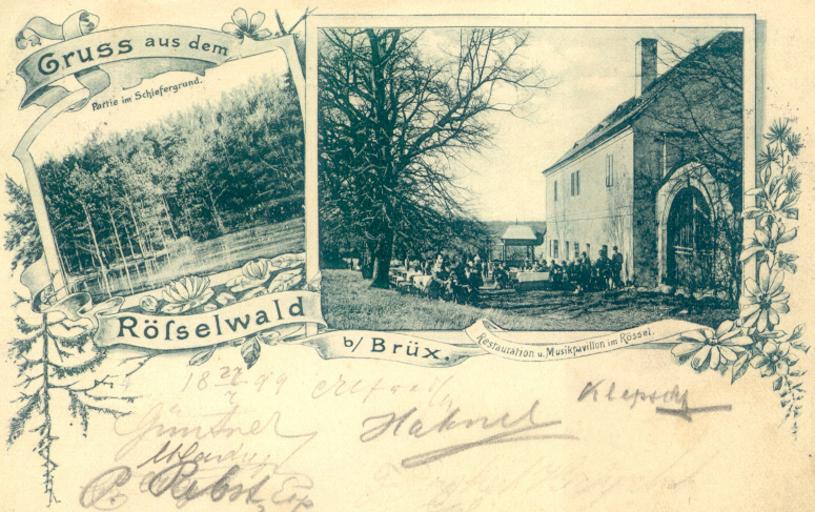 Gruss aus dem
Partie im Schiefergrund.
Röſselwald
b/ Brüx.
Restauration u. Musikpavillon im Rössel.
18 99
Klepsch
Güntner
Hähnel
P. Pabst